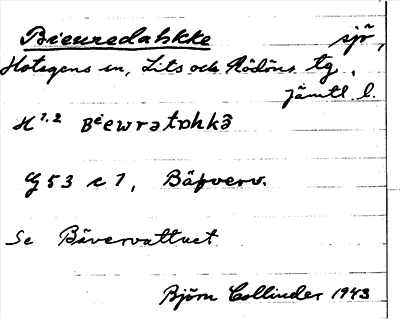 Bieuredahkke sjö,
Hotagens sn, Lits och Rödöns tg,
Jämtl. l.
H 1,2 Bͥewrətɒhkə̑
G 53 c 1, Bäfverv.
Se Bävervattnet
Björn Collinder 1943